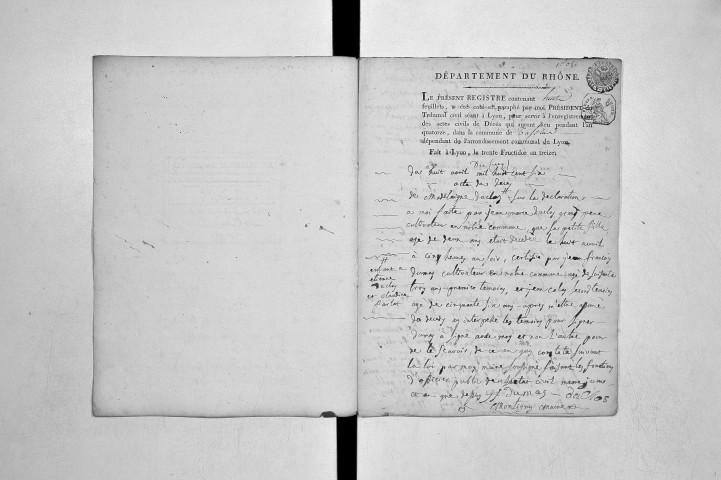 DÉPARTEMENT DU RHÔNE.
LE PRÉSENT REGISTRE contenant huit
feuillets, a été coté et paraphé par moi PRÉSIDENT du
Tribunal civil séant à Lyon, pour servir à l'enregistrement
des actes civils de Décès qui auront lieu pendant l'an
quatorze, dans la commune de
dépendant de l'arrondissement communal de Lyon.
Fait à Lyon, le trente Fructidor an treize.
du huit avril mil huit cent six
acte de deces
de Madelaigne duclos # sur la declaration
a moi faite par jean marie duclos grand pere
cultivateur en notre commune, que sa petite fille
age de deux ans etait decedé le huit avril
à cinq heures au soir, certifié par jean françois
dumas cultivateur en notre commune agé de soixante
trois ans premier temoins, et jean second temoin
age de cinquante six ans apres m'etre assuré
du deces et interpellé les temoins pour signer
dumas a signé avec moy et non l'autre pour
ne le scavoir de ce en quis constaté suivant
la loi par moy maire soussigné faisant les fonctions
d'officier public de l'etat civil meme jours
et an que dessus Dumas duclos
Montigny maire
#
enfant a
etienne
duclos
et claudine